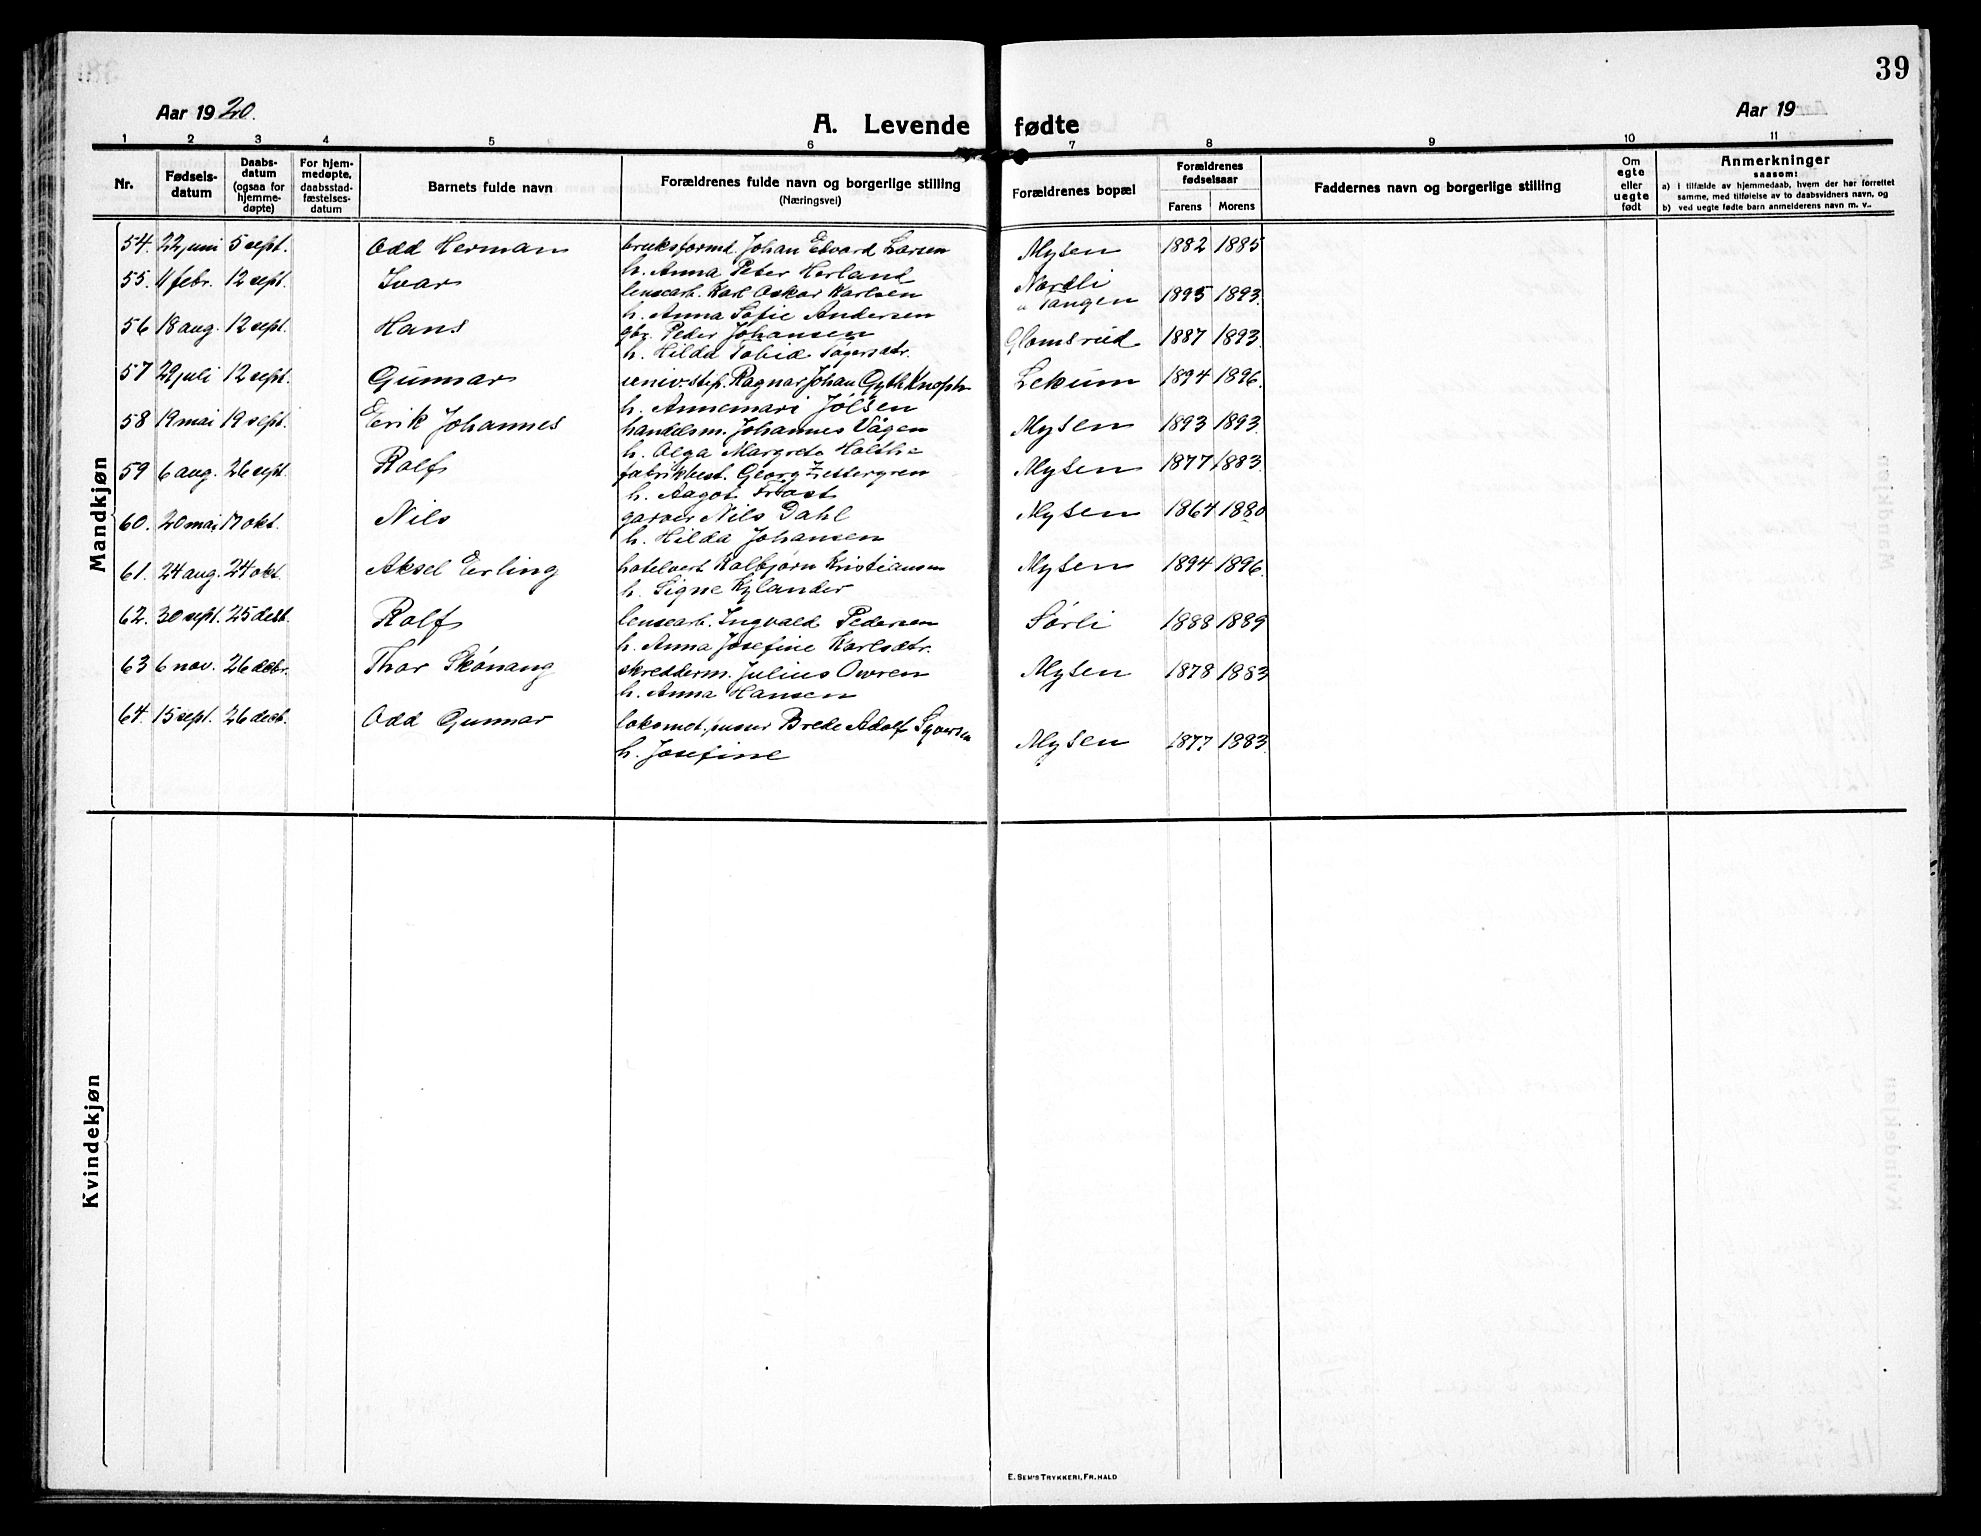 39
Aar 1920.
A. Levende fødte
Aar 19
1 2 3 4 5 6 7 8 9 10 11
Nr.
Fødsels-
datum
Daabs-
datum
(ogsaa for
hjemme-
døpte)
For hjem-
medøpte,
daabsstad-
fæstelses-
datum
Barnets fulde navn
Forældrenes fulde navn og borgerlige stilling
(Næringsvei)
Forældrenes bopæl
Forældrenes
fødselsaar
Farens Morens
Faddernes navn og borgerlige stilling
Om
egte
eller
uegte
født
Anmerkninger
saasom:
a) i tilfælde av hjemmedaab, hvem der har forrettet
samme, med tilføielse av to daabsvidners navn, og
b) ved uegte fødte barn anmelderens navn m. v..
Mandkjøn
54. 22 juni 5 sept. Odd Herman bruksformd Johan Edvard Larsen Mysen 1882 1885
h. Anna Peter Herland
55. 11 febr. 12 sept. Ivar lensearb. Karl Oskar Karlsen Nordli
u Tangen 1895 1893.
h. Anna Sofie Andersen
56 18 aug. 12 sept. Hans gbr. Peder Johansen Glomsrud 1887 1893.
h. Hilda Tobia
57 29 juli 12 sept. Gunnar univ.stip. Ragnar Johan Gyth Knoph Lekum 1894 1896.
h. Annemari Jølsen
58 19 mai 19 sept. Erik Johannes handelsm. Johannes Vågen Mysen 1893 1893.
h. Olga Margrete Holth
59 6 aug. 26 sept. Rolf fabrikbest. Georg Zettergren Mysen 1877 1883.
h. Aagot Frost
60. 20 mai 17 okt. Nils garver Nils Dahl Mysen 1864 1880
h. Hilda Johansen
61. 24 aug. 24 okt. Aksel Erling hotelvert Kolbjørn Kristiansen Mysen 1894 1896.
h. Signe Kylander
62. 30 sept. 25 desb. Rolf lensearb. Ingvald Pedersen Sørli 1888 1889
h. Anna Josefine Karlsdtr.
63 6 nov. 26 decbr. Thor Skønang skredderm. Julius Owren Mysen 1878 1883
h. Anna Hansen
64. 15 sept. 26 decb. Odd Gunnar lokomot.pusser Brede Adolf Syversen Mysen 1877 1883.
h. Josefine
Kvindekjøn
E. Sem's Trykkeri, Fr.hald